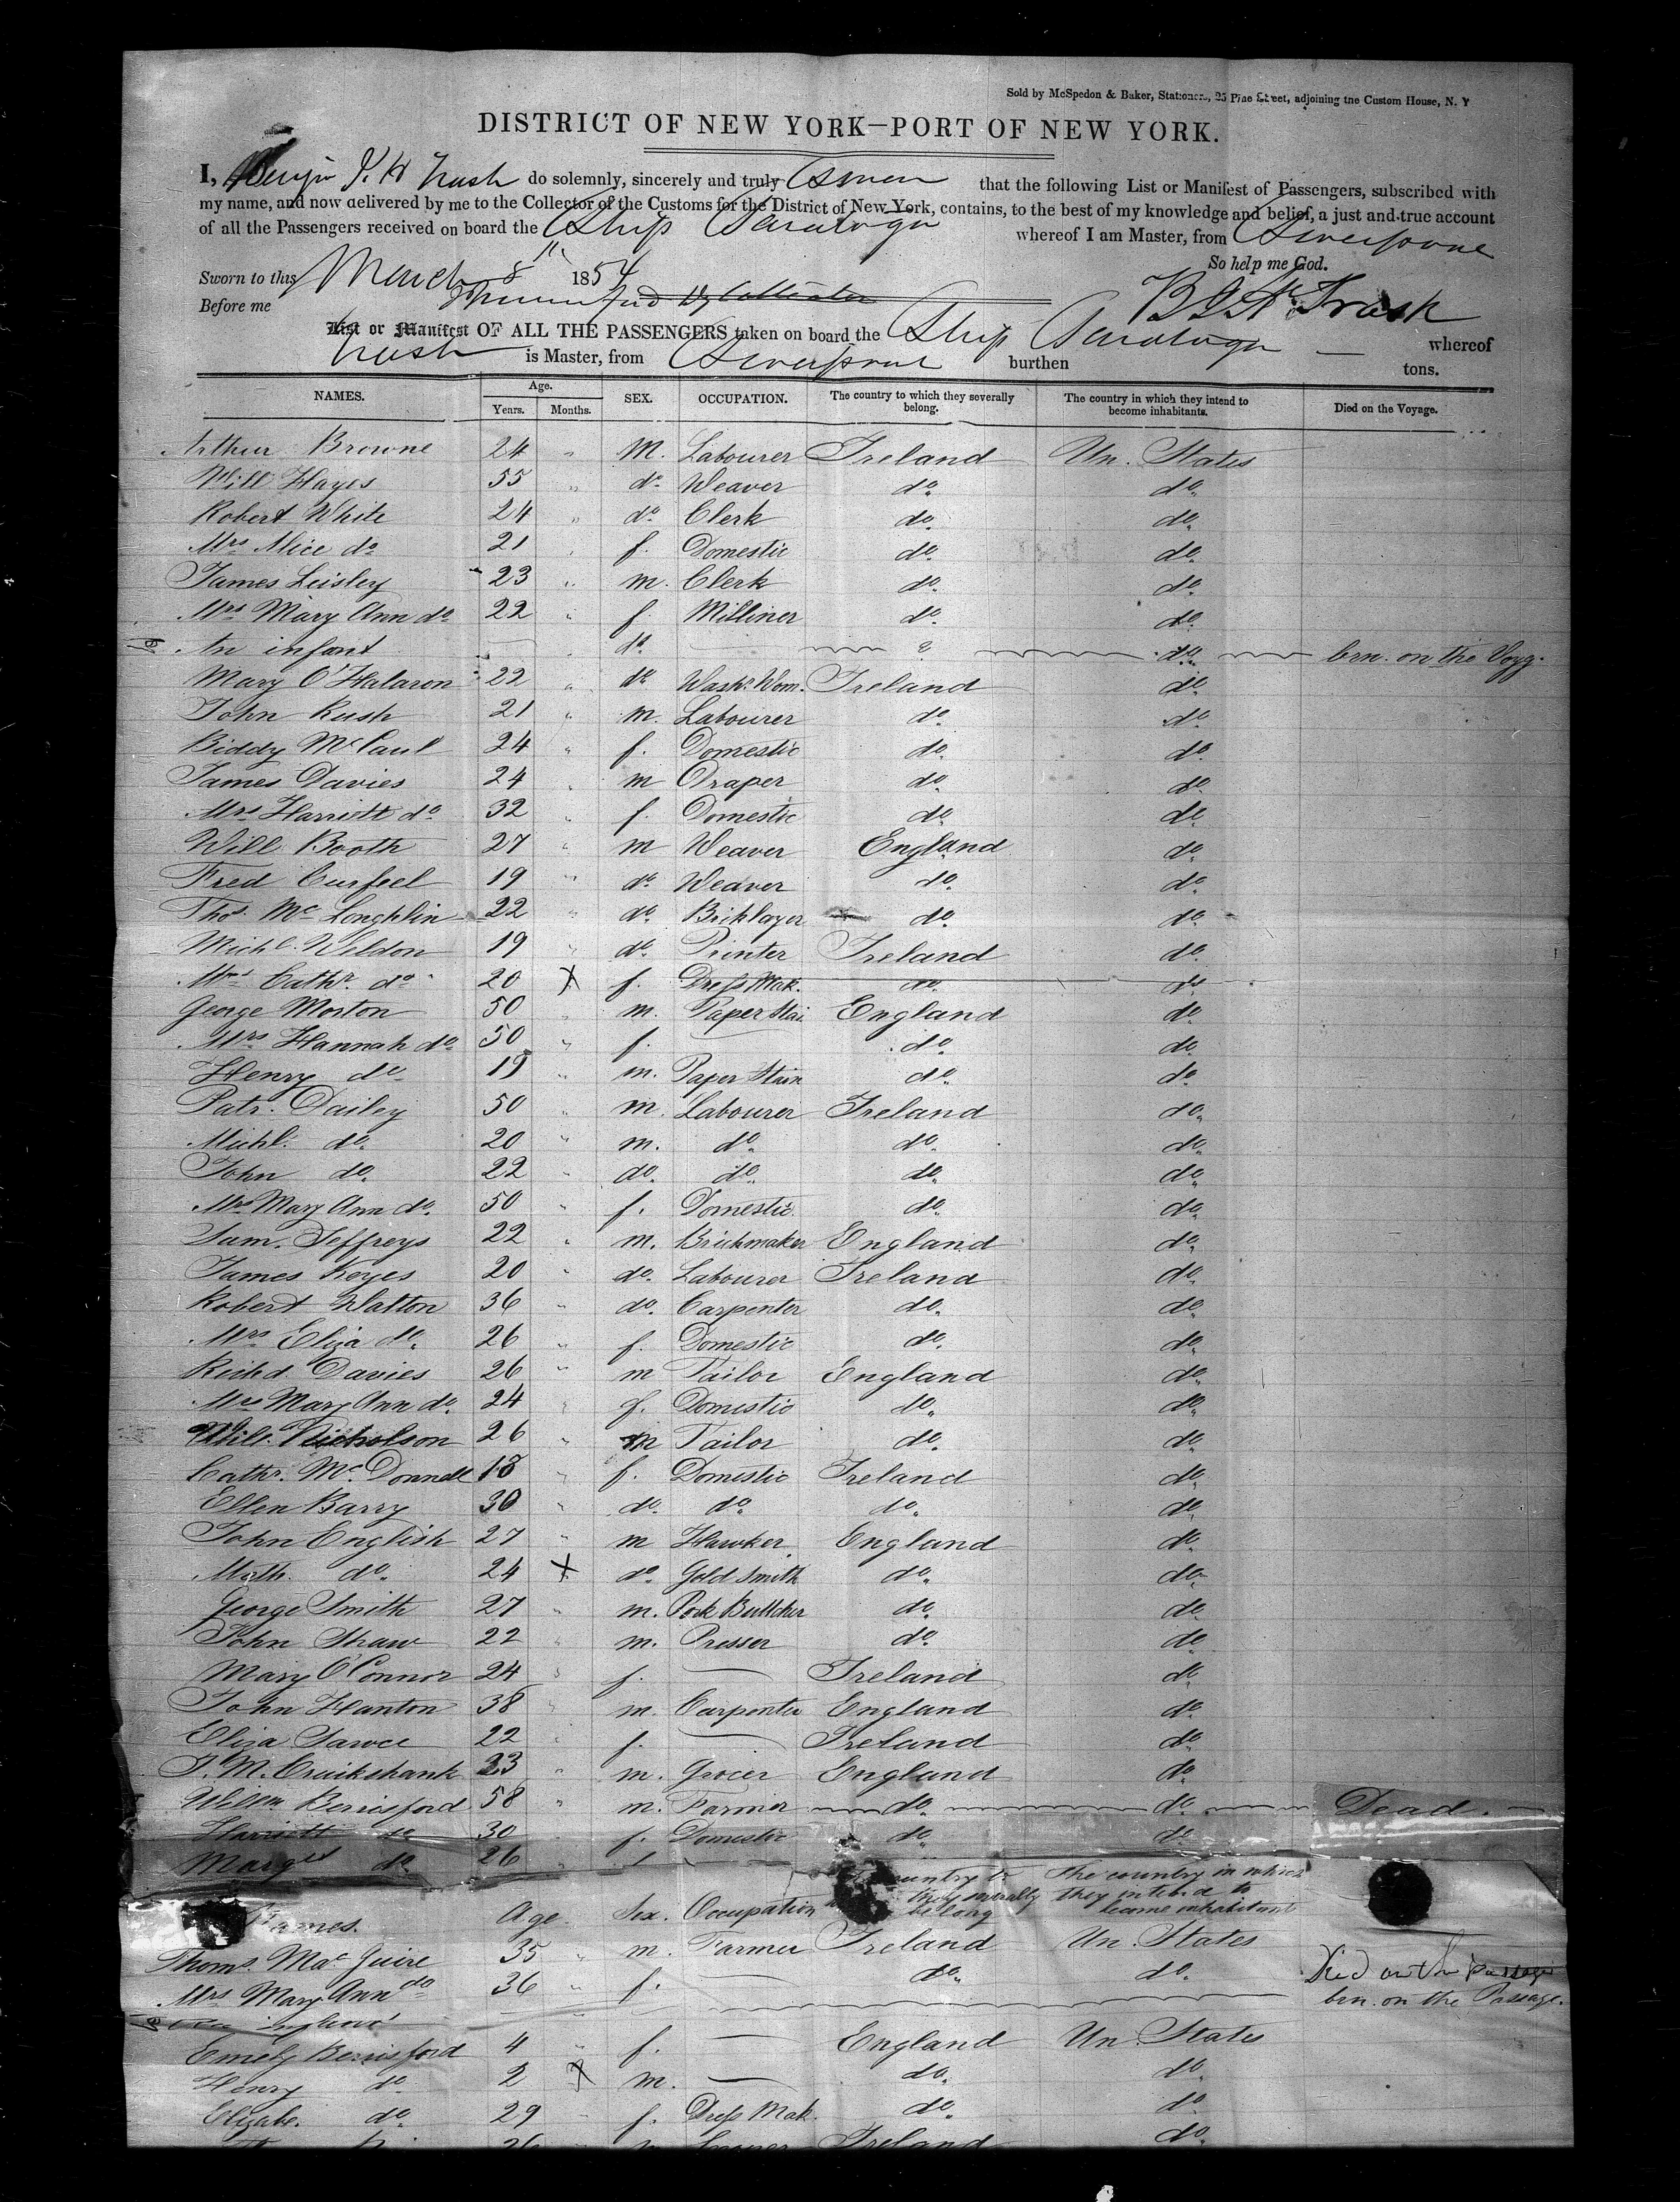 Sold by McSpedon & Baker, Stationers, 25 Pine Street, adjoining the Custom House, N. Y
DISTRICT OF NEW YORK—PORT OF NEW YORK.
I, Benjn J. H Trash do solemnly, sincerely and truly Swear that the following List or Manifest of Passengers, subscribed with
my name, and now delivered by me to the Collector of the Customs for the District of New York, contains, to the best of my knowledge and belief, a just and true account
of all the Passengers received on board the Ship Saratoga whereof I am Master, from Liverpool
So help me God.
Sworn to this March 8th 1854
Before me B J H Trask
List or Manifest OF ALL THE PASSENGERS taken on board the Ship Saratoga — whereof
Trash is Master, from Liverpool burthen tons.
NAMES. Age. Years. Months. SEX. OCCUPATION. The country to which they severally belong. The country in which they intend to become inhabitants. Died on the Voyage.
Arthur Browne 24 " M. Labourer Ireland Un. States
Will Hayes 55 " do. Weaver do. do.
Robert White 24 " do. Clerk do. do.
Mrs Alice do 21 " f. Domestic do. do.
James Leisley 23 " m. Clerk do. do.
Mrs Mary Ann do 22 " f Milliner do. do.
An infant do. do. brn. on the Voyg.
Mary O'Halaron 22 " do Washr. Wom. Ireland do.
John Rush 21 " m. Labourer do. do.
Biddy McCaul 24 " f. Domestic do. do.
James Davies 24 " m Draper do. do.
Mrs Harriett do 32 " f. Domestic do. do.
Will Booth 27 " m Weaver England do.
Fred Curfeel 19 " do. Weaver do. do.
Thos. Mc Longhlin 22 " do. Bricklayer do. do.
Michl. Weldon 19 " do. Printer Ireland do.
Mrs Cathr. do 20 X f. Dress Mak. do. do
George Morton 50 " m. Paper Stai. England do.
Mrs Hannah do 50 " f. do. do.
Henry do 19 " m. Paper Stain do. do.
Patr. Dailey 50 " m. Labourer Ireland do.
Michl. do. 20 " m. do. do. do.
John do. 22 " do. do. do. do.
Mrs Mary Ann do. 50 " f. Domestic do. do.
Sam. Jeffreys 22 " m. Brickmaker England do.
James Keyes 20 " do. Labourer Ireland do.
Robert Walton 36 " do. Carpenter do. do.
Mrs Eliza do. 26 " f. Domestic do. do.
Richd. Davies 26 " m Tailor England do.
Mrs Mary Ann do. 24 " f. Domestic do. do.
Will. Nicholson 26 " m Tailor do. do.
Cathr. Mc Donnell 18 " f. Domestic Ireland do.
Ellen Barry 30 " do. do. do. do.
John English 27 " m Hawker England do.
Math. do. 24 X do. Gold Smith do. do.
George Smith 27 " m. Pork Buttcher do. do.
John Shaw 22 " m. Presser do. do.
Mary O'Connor 24 " f. — Ireland do.
John Hanton 38 " m. Carpenter England do.
Eliza 22 " f. — Ireland do.
J. M. Cruikshank 23 " m. Grocer England do.
Willm Berrisford 58 " m. Farmer do. do. Dead.
Harriett do 30 " f. Domestic do. do
Margt do. 26 "
Names. Age Sex. Occupation country to they severally belong The country in which they intend to become inhabitants
Thoms. Mac Guire 35 " m. Farmer Ireland Un. States
Mrs Mary Ann do 36 " f. — do. do. Died on the passage
brn. on the Passage.
Emely Berrisford 4 " f. — England Un. States
Henry do. 2 X m. — do. do.
Elizabe. do. 29 f. Dress Mak. do. do.
26 Ireland do.